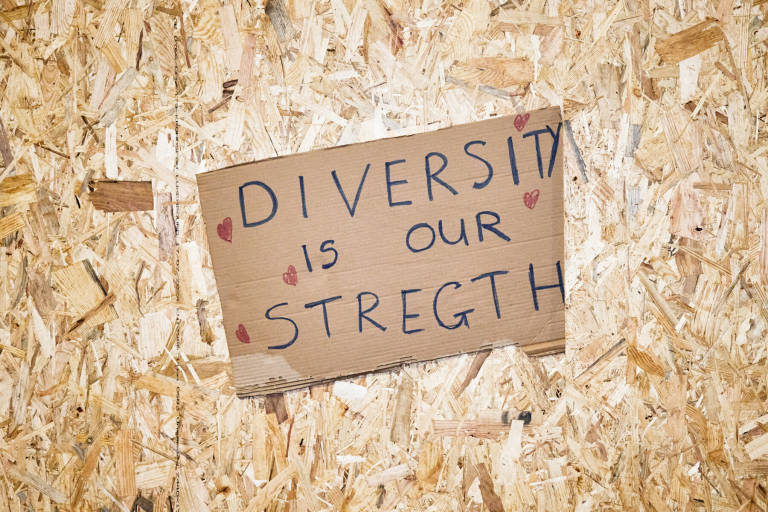 DIVERSITY
IS OUR
STREGTH